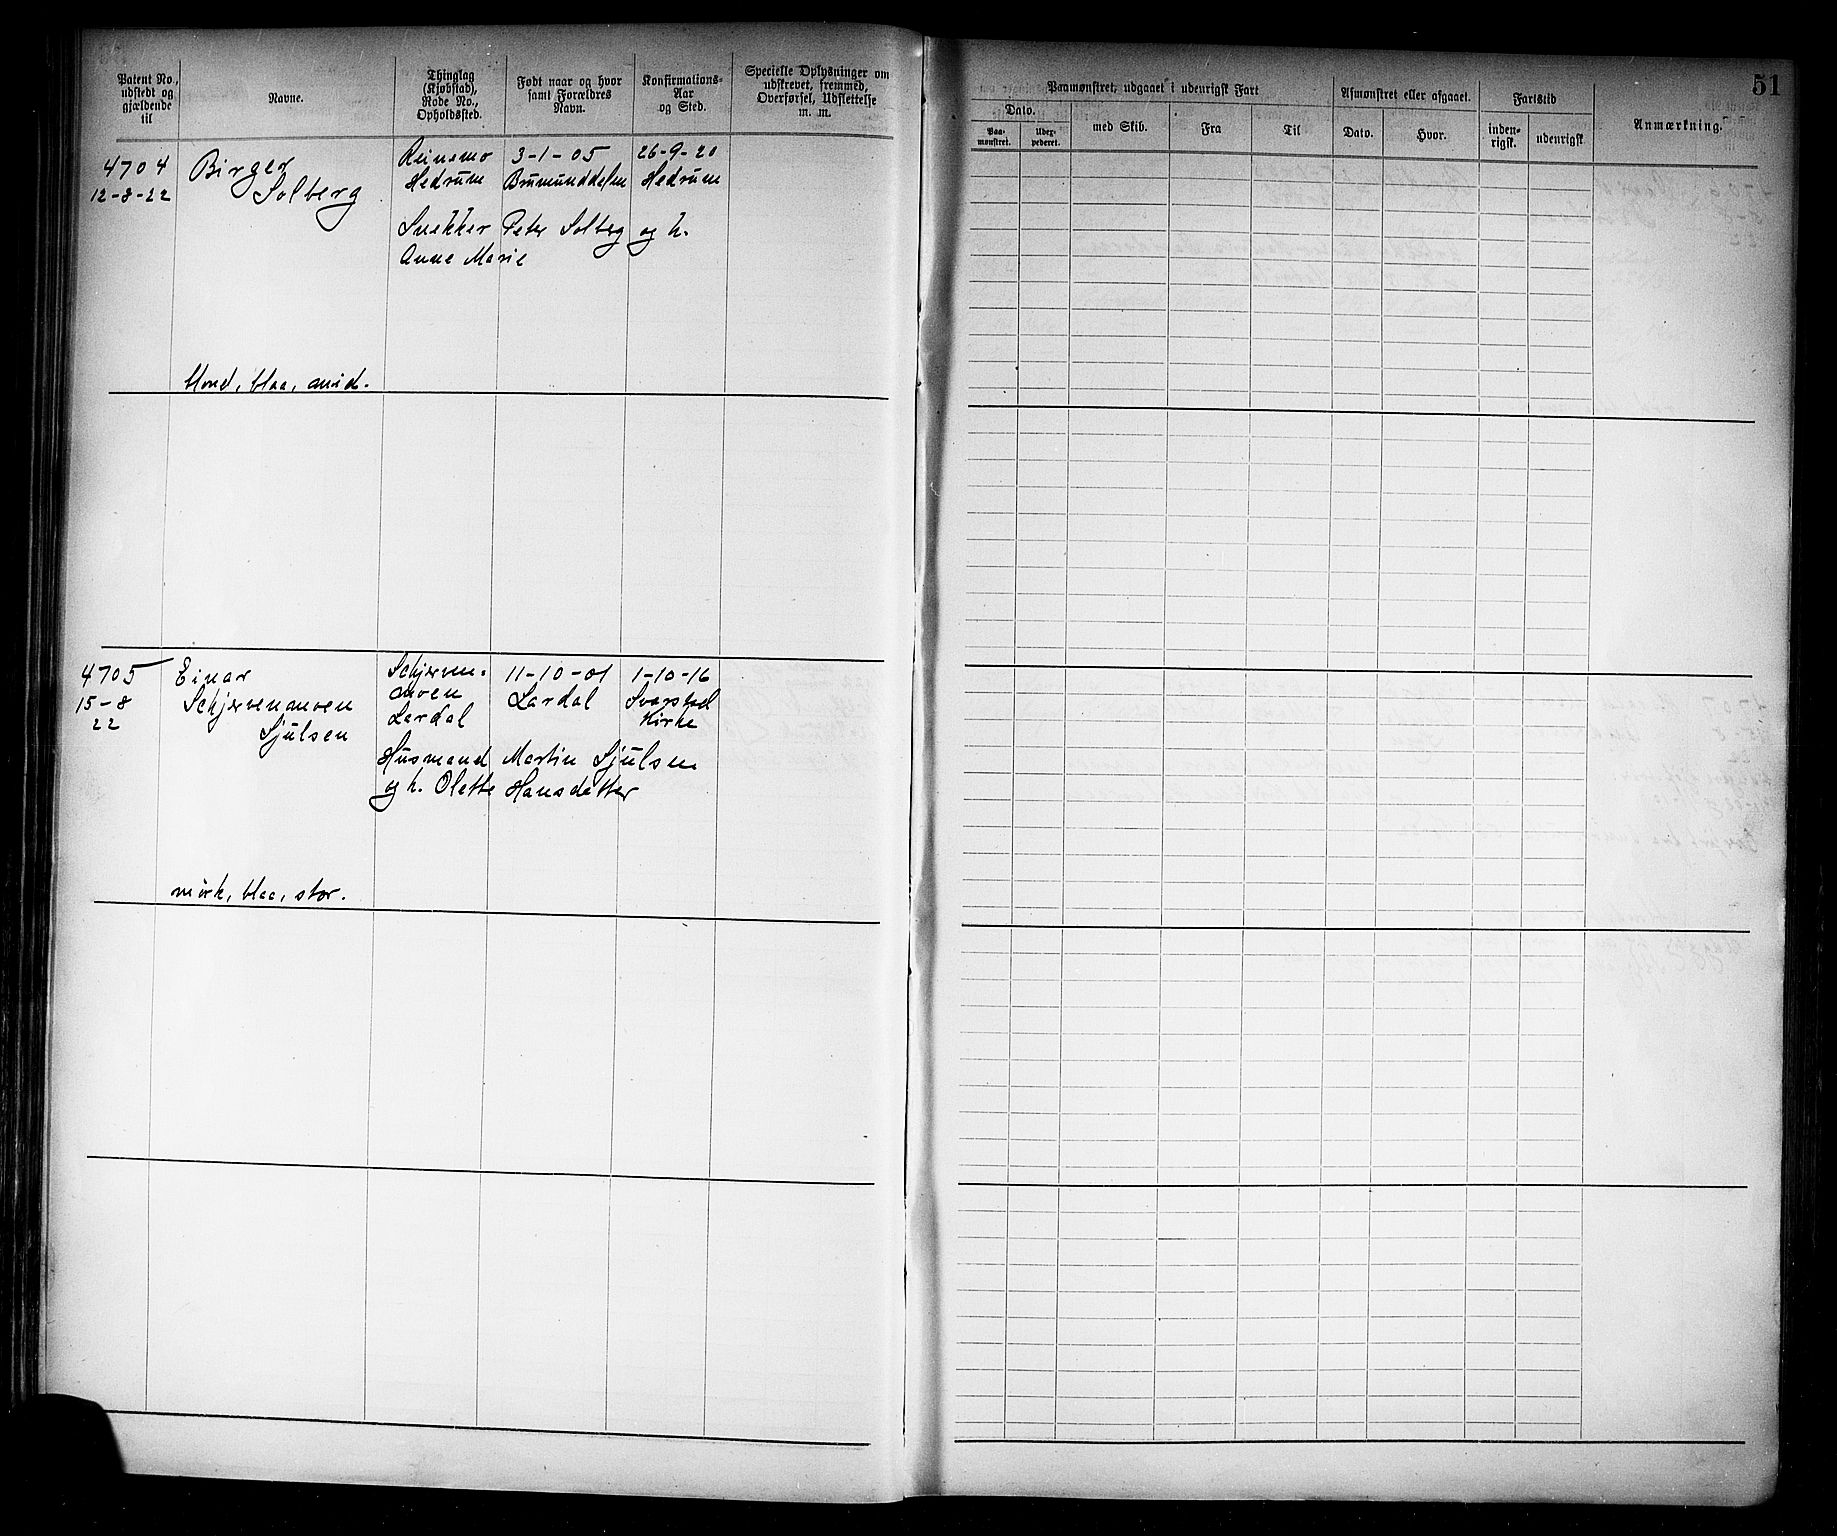 Patent No., udstedt og gjældende til
Navne.
Thinglag (Kjøbstad), Rode No., Opholdssted.
Født naar og hvor samt Forældres Navn.
Konfirmations-Aar og Sted.
Specielle Oplysninger om udskrevet, fremmed, Overførsel, Udslettelse m. m.
Paamønstret, udgaaet i udenrigsk Fart
Afmønstret eller afgaaet.
Fartstid
Anmærkning.
51
Dato.
Paa-mønstret.
Uder-pederet.
med Skib.
Fra
Til
Dato.
Hvor.
inden-rigsk.
udenrigsk
4704
12-8-22
Birger
Solberg
Reinsmo
Hedrum
3-1-05
Brumunddalen
26-9-20
Hedrum
Snekker Peter Solberg og h.
Anne Marie
blond, blaa, mid.
4705
15-8
22
Einar
Schjervenmoen
Sjulsen
Schjerven-
moen
Lardal
11-10-01
Lardal
1-10-16
Svarstad
Kirke
Husmand Martin Sjulsen
og h. Olette Hansdatter
mörk, blaa, stor.